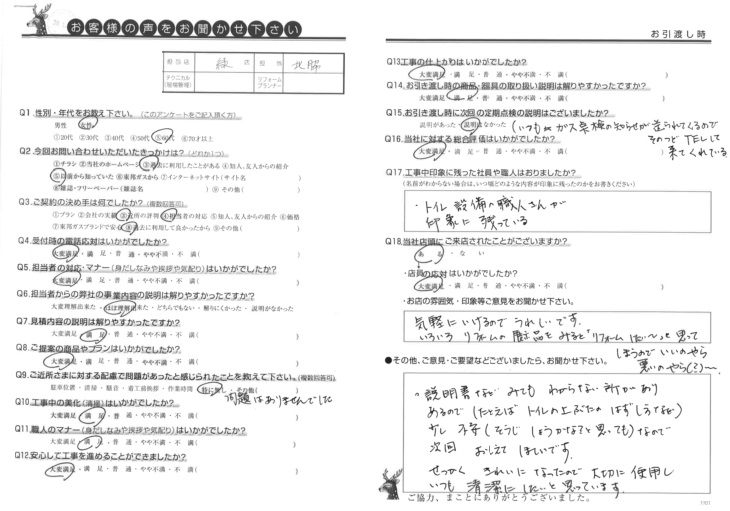 お客様の声をお聞かせ下さい
担当店 店 担当 北脇
テクニカル(現場管理) リフォームプランナー
Q1 性別・年代をお教え下さい。(このアンケートをご記入頂く方)
男性 女性
①20代 ②30代 ③40代 ④50代 ⑤60代 ⑥70才以上
Q2 今回お問い合わせいただいたきっかけは?(どれか1つ)
①チラシ ②当社のホームページ ③過去に利用したことがある ④知人、友人からの紹介
⑤以前から知っていた ⑥東邦ガスから ⑦インターネットサイト(サイト名 )
⑧雑誌・フリーペーパー(雑誌名 ) ⑨その他( )
Q3 ご契約の決め手は何でしたか?(複数回答可)
①プラン ②会社の実績 ③近所の評判 ④担当者の対応 ⑤知人、友人からの紹介 ⑥価格
⑦東邦ガスブランドで安心 ⑧過去に利用して良かったから ⑨その他( )
Q4 受付時の電話応対はいかがでしたか?
大変満足・満 足・普 通・やや不満・不 満( )
Q5 担当者の対応・マナー(身だしなみや挨拶や気配り)はいかがでしたか?
大変満足・満 足・普 通・やや不満・不 満( )
Q6 担当者からの弊社の事業内容の説明は解りやすかったですか?
大変理解出来た・ほぼ理解出来た・どちらでもない・解りにくかった・説明がなかった
Q7 見積内容の説明は解りやすかったですか?
大変満足・満 足・普 通・やや不満・不 満( )
Q8 ご提案の商品やプランはいかがでしたか?
大変満足・満 足・普 通・やや不満・不 満( )
Q9 ご近所さまに対する配慮で問題があったと感じられたことを教えて下さい。(複数回答可)
駐車位置・清掃・騒音・着工前挨拶・作業時間 特に無し・その他( )
問題はありませんでした
Q10 工事中の美化(清掃)はいかがでしたか?
大変満足・満 足・普 通・やや不満・不 満( )
Q11 職人のマナー(身だしなみや挨拶や気配り)はいかがでしたか?
大変満足・満 足・普 通・やや不満・不 満( )
Q12 安心して工事を進めることができましたか?
大変満足・満 足・普 通・やや不満・不 満( )
お引渡し時
Q13 工事の仕上がりはいかがでしたか?
大変満足・満 足・普 通・やや不満・不 満( )
Q14 お引き渡し時の商品・器具の取り扱い説明は解りやすかったですか?
大変満足・満 足・普 通・やや不満・不 満( )
Q15 お引き渡し時に次回の定期点検の説明はございましたか?
説明があった・説明はなかった
(いつもガス点検の知らせが送られてくるので
そのつどTELして
来てくれている
Q16 当社に対する総合評価はいかがでしたか?
大変満足・満 足・普 通・やや不満・不 満( )
Q17 工事中印象に残った社員や職人はおりましたか?
(名前がわからない場合は、いつ頃どのような内容が印象に残ったのかをお書きください)
・トイレ設備の職人さんが
印象に残っている
Q18 当社店頭にご来店されたことがございますか?
あ る ・ な い
・店員の応対はいかがでしたか?
大変満足・満 足・普 通・やや不満・不 満( )
・お店の雰囲気・印象等ご意見をお聞かせ下さい。
気軽にいけるのでうれしいです。
いろいろリフォームの展示品をみると「リフォームしたい〜っと思って
しまうのでいいのやら
悪いのやら(?)〜
●その他、ご意見・ご要望などございましたら、お聞かせ下さい。
・説明書などみてもわからない所があり
あるので(たとえばトイレの上ぶたのはずし方など)
少し不安(そうじしょうかなと思っても)なので
次回おしえてほしいです。
せっかくきれいになったので大切に使用し
いつも清潔にしたいと思っています。
ご協力、まことにありがとうございました。
1101